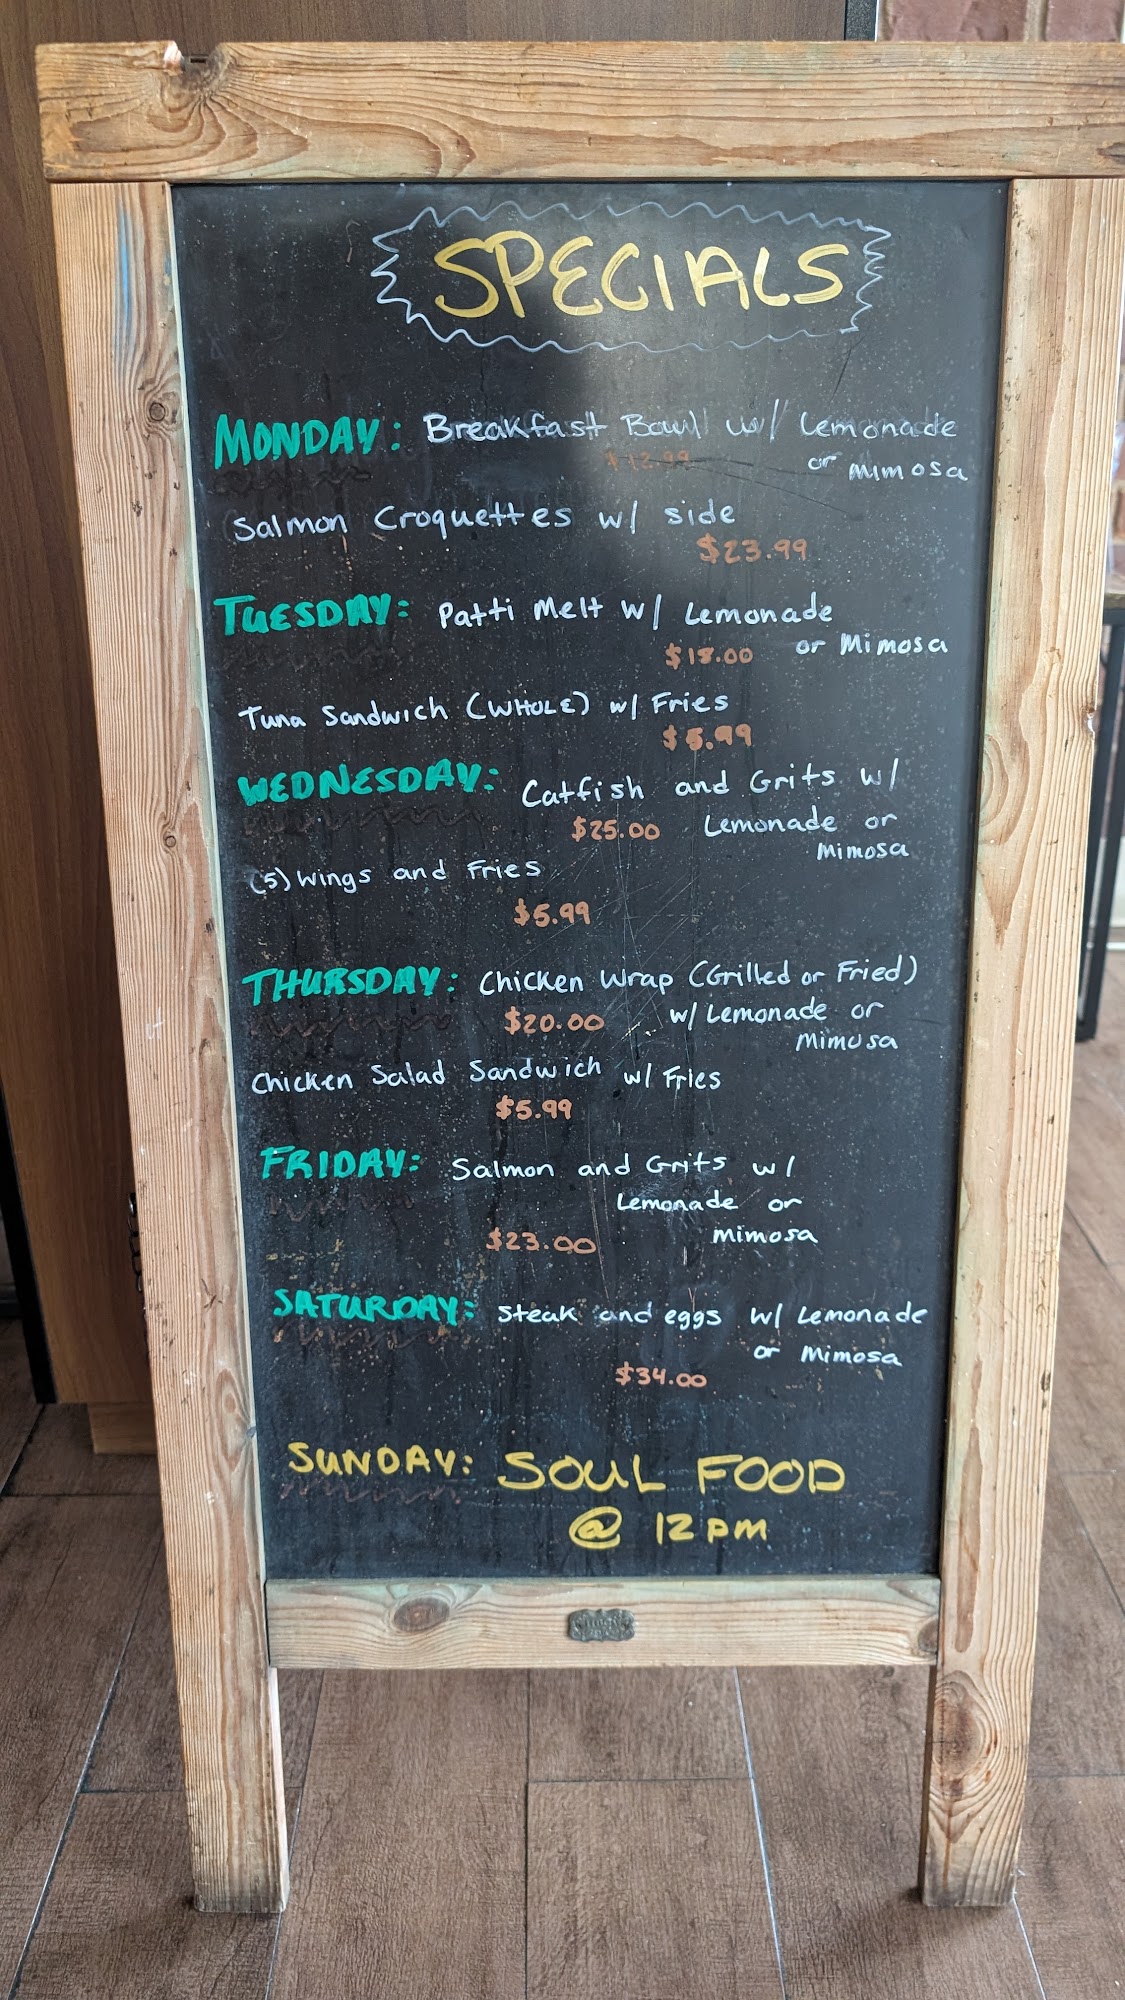 SPECIALS
MONDAY: Breakfast Bowl w/ Lemonade
$12.99 or mimosa
Salmon Croquettes w/ side
$23.99
TUESDAY: Patti Melt w/ Lemonade
$18.00 or Mimosa
Tuna Sandwich (WHOLE) w/ Fries
$5.99
WEDNESDAY: Catfish and Grits w/
$25.00 Lemonade or
Mimosa
(5) Wings and Fries
$5.99
THURSDAY: Chicken Wrap (Grilled or Fried)
$20.00 w/ Lemonade or
Mimosa
Chicken Salad Sandwich w/ Fries
$5.99
FRIDAY: Salmon and Grits w/
Lemonade or
$23.00 mimosa
SATURDAY: Steak and eggs w/ Lemonade
or Mimosa
$34.00
SUNDAY: SOUL FOOD
@ 12 pm